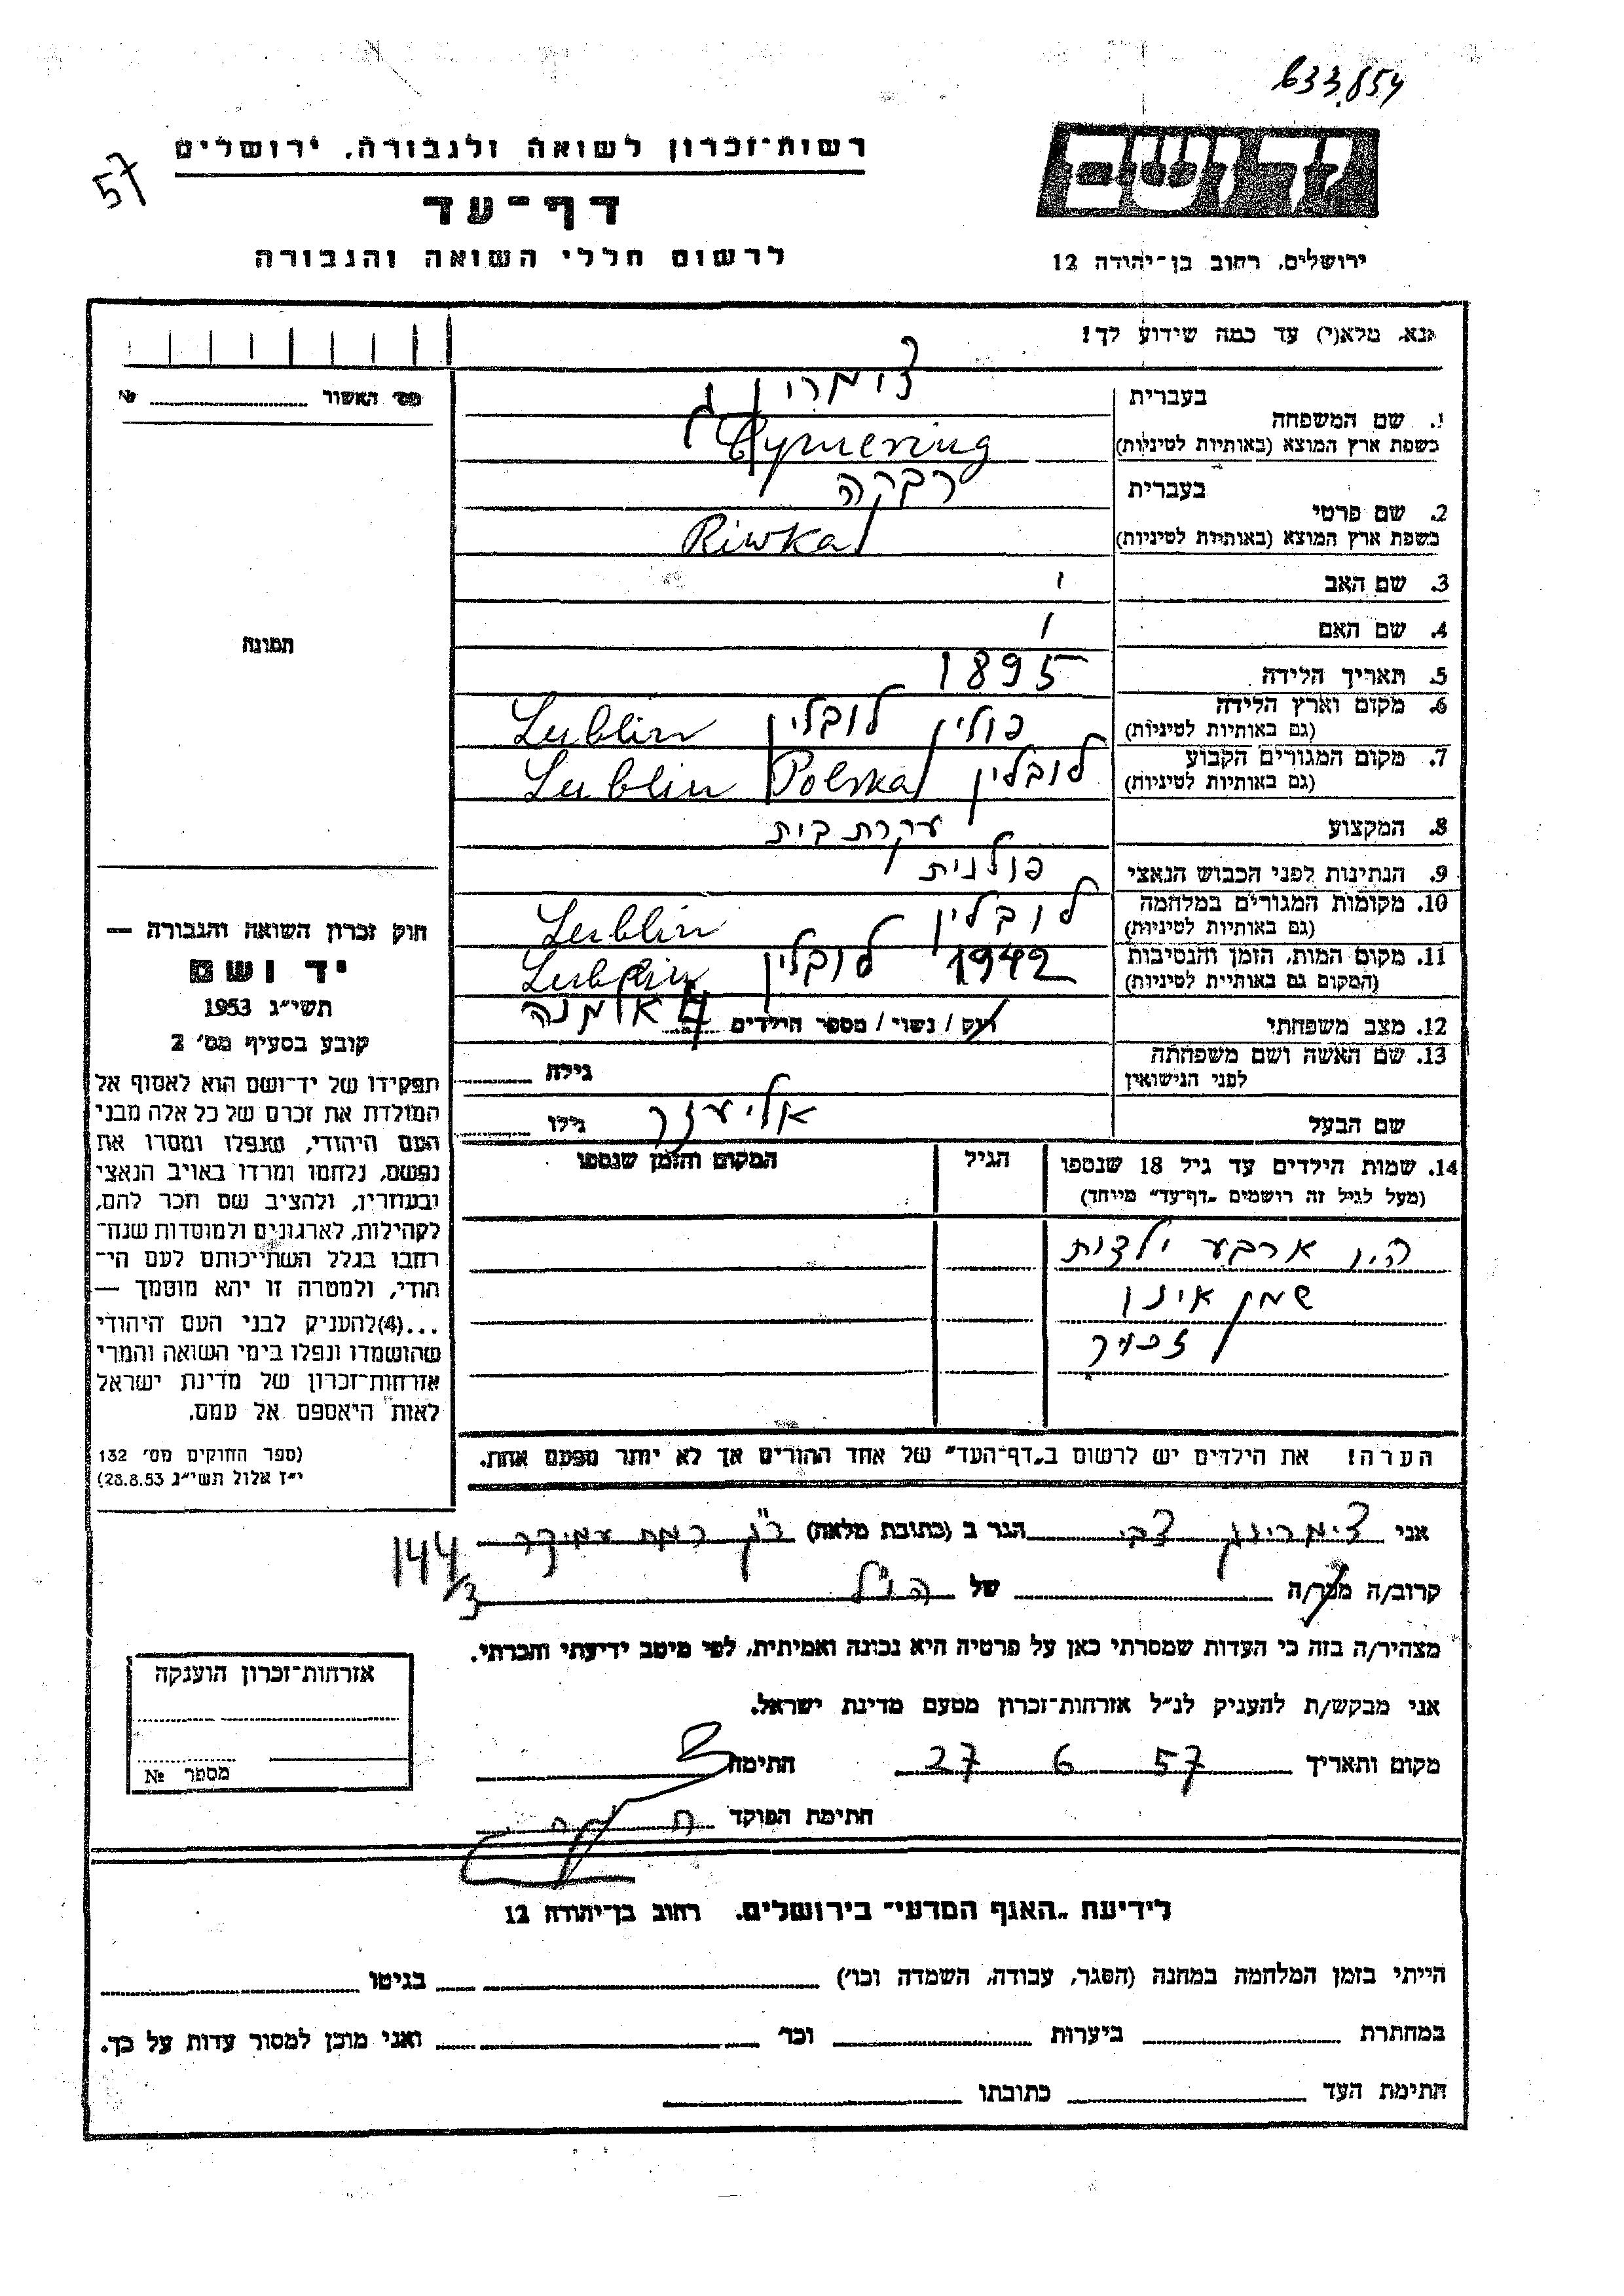 633,854
57
רשות־זכרון לשואה ולגבורה, ירושלים
דף־עד
לרשום חללי השואה והגבורה
יד ושם
ירושלים, רחוב בן־יהודה 12
אנא, מלא(י) עד כמה שידוע לך!
מס׳ האשור №
בעברית
1. שם המשפחה
בשפת ארץ המוצא (באותיות לטיניות)
Cymering
בעברית רבקה
2. שם פרטי
בשפת ארץ המוצא (באותיות לטיניות) Riwka
3. שם האב
4. שם האם
5. תאריך הלידה 1895
6. מקום וארץ הלידה פולין לובלין Lublin
(גם באותיות לטיניות)
7. מקום המגורים הקבוע לובלין Polska Lublin
(גם באותיות לטיניות)
8. המקצוע עקרת בית
9. הנתינות לפני הכבוש הנאצי פולנית
10. מקומות המגורים במלחמה לובלין Lublin
(גם באותיות לטיניות)
11. מקום המות, הזמן והנסיבות 1942 לובלין Lublin
(המקום גם באותיות לטיניות)
12. מצב משפחתי רוק / נשוי / מספר הילדים 4 אלמנה
13. שם האשה ושם משפחתה
לפני הנישואין
גילה
שם הבעל אליעזר גילו
14. שמות הילדים עד גיל 18 שנספו
(מעל לגיל זה רושמים „דף־עד” מיוחד)
הגיל
המקום והזמן שנספו
היו ארבע ילדות
שמן אינו
זכור
תמונה
חוק זכרון השואה והגבורה —
יד ושם
תשי״ג 1953
קובע בסעיף מס׳ 2
תפקידו של יד־ושם הוא לאסוף אל
המולדת את זכרם של כל אלה מבני
העם היהודי, שנפלו ומסרו את
נפשם, נלחמו ומרדו באויב הנאצי
ובעוזריו, ולהציב שם וזכר להם,
לקהילות, לארגונים ולמוסדות שנח־
רבו בגלל השתייכותם לעם הי־
הודי, ולמטרה זו יהא מוסמך —
...(4) להעניק לבני העם היהודי
שהושמדו ונפלו בימי השואה והמרי
אזרחות־זכרון של מדינת ישראל
לאות היאספם אל עמם.
(ספר החוקים מס׳ 132
י״ז אלול תשי״ג 28.8.53)
הערה! את הילדים יש לרשום ב„דף־העד” של אחד ההורים אך לא יותר מפעם אחת.
אני צימרינג צבי הגר ב (כתובת מלאה) ר״ג רמת עמידר 144/3
קרוב/ה מכר/ה של הנ״ל
מצהיר/ה בזה כי העדות שמסרתי כאן על פרטיה היא נכונה ואמיתית, לפי מיטב ידיעתי והכרתי.
אני מבקש/ת להעניק לנ״ל אזרחות־זכרון מטעם מדינת ישראל.
מקום ותאריך 27 6 57 חתימה
חתימת הפוקד
אזרחות־זכרון הוענקה
מספר №
לידיעת „האגף המדעי” בירושלים, רחוב בן־יהודה 12
הייתי בזמן המלחמה במחנה (הסגר, עבודה, השמדה וכו׳) בגיטו
במחתרת ביערות וכו׳ ואני מוכן למסור עדות על כך.
חתימת העד כתובתו